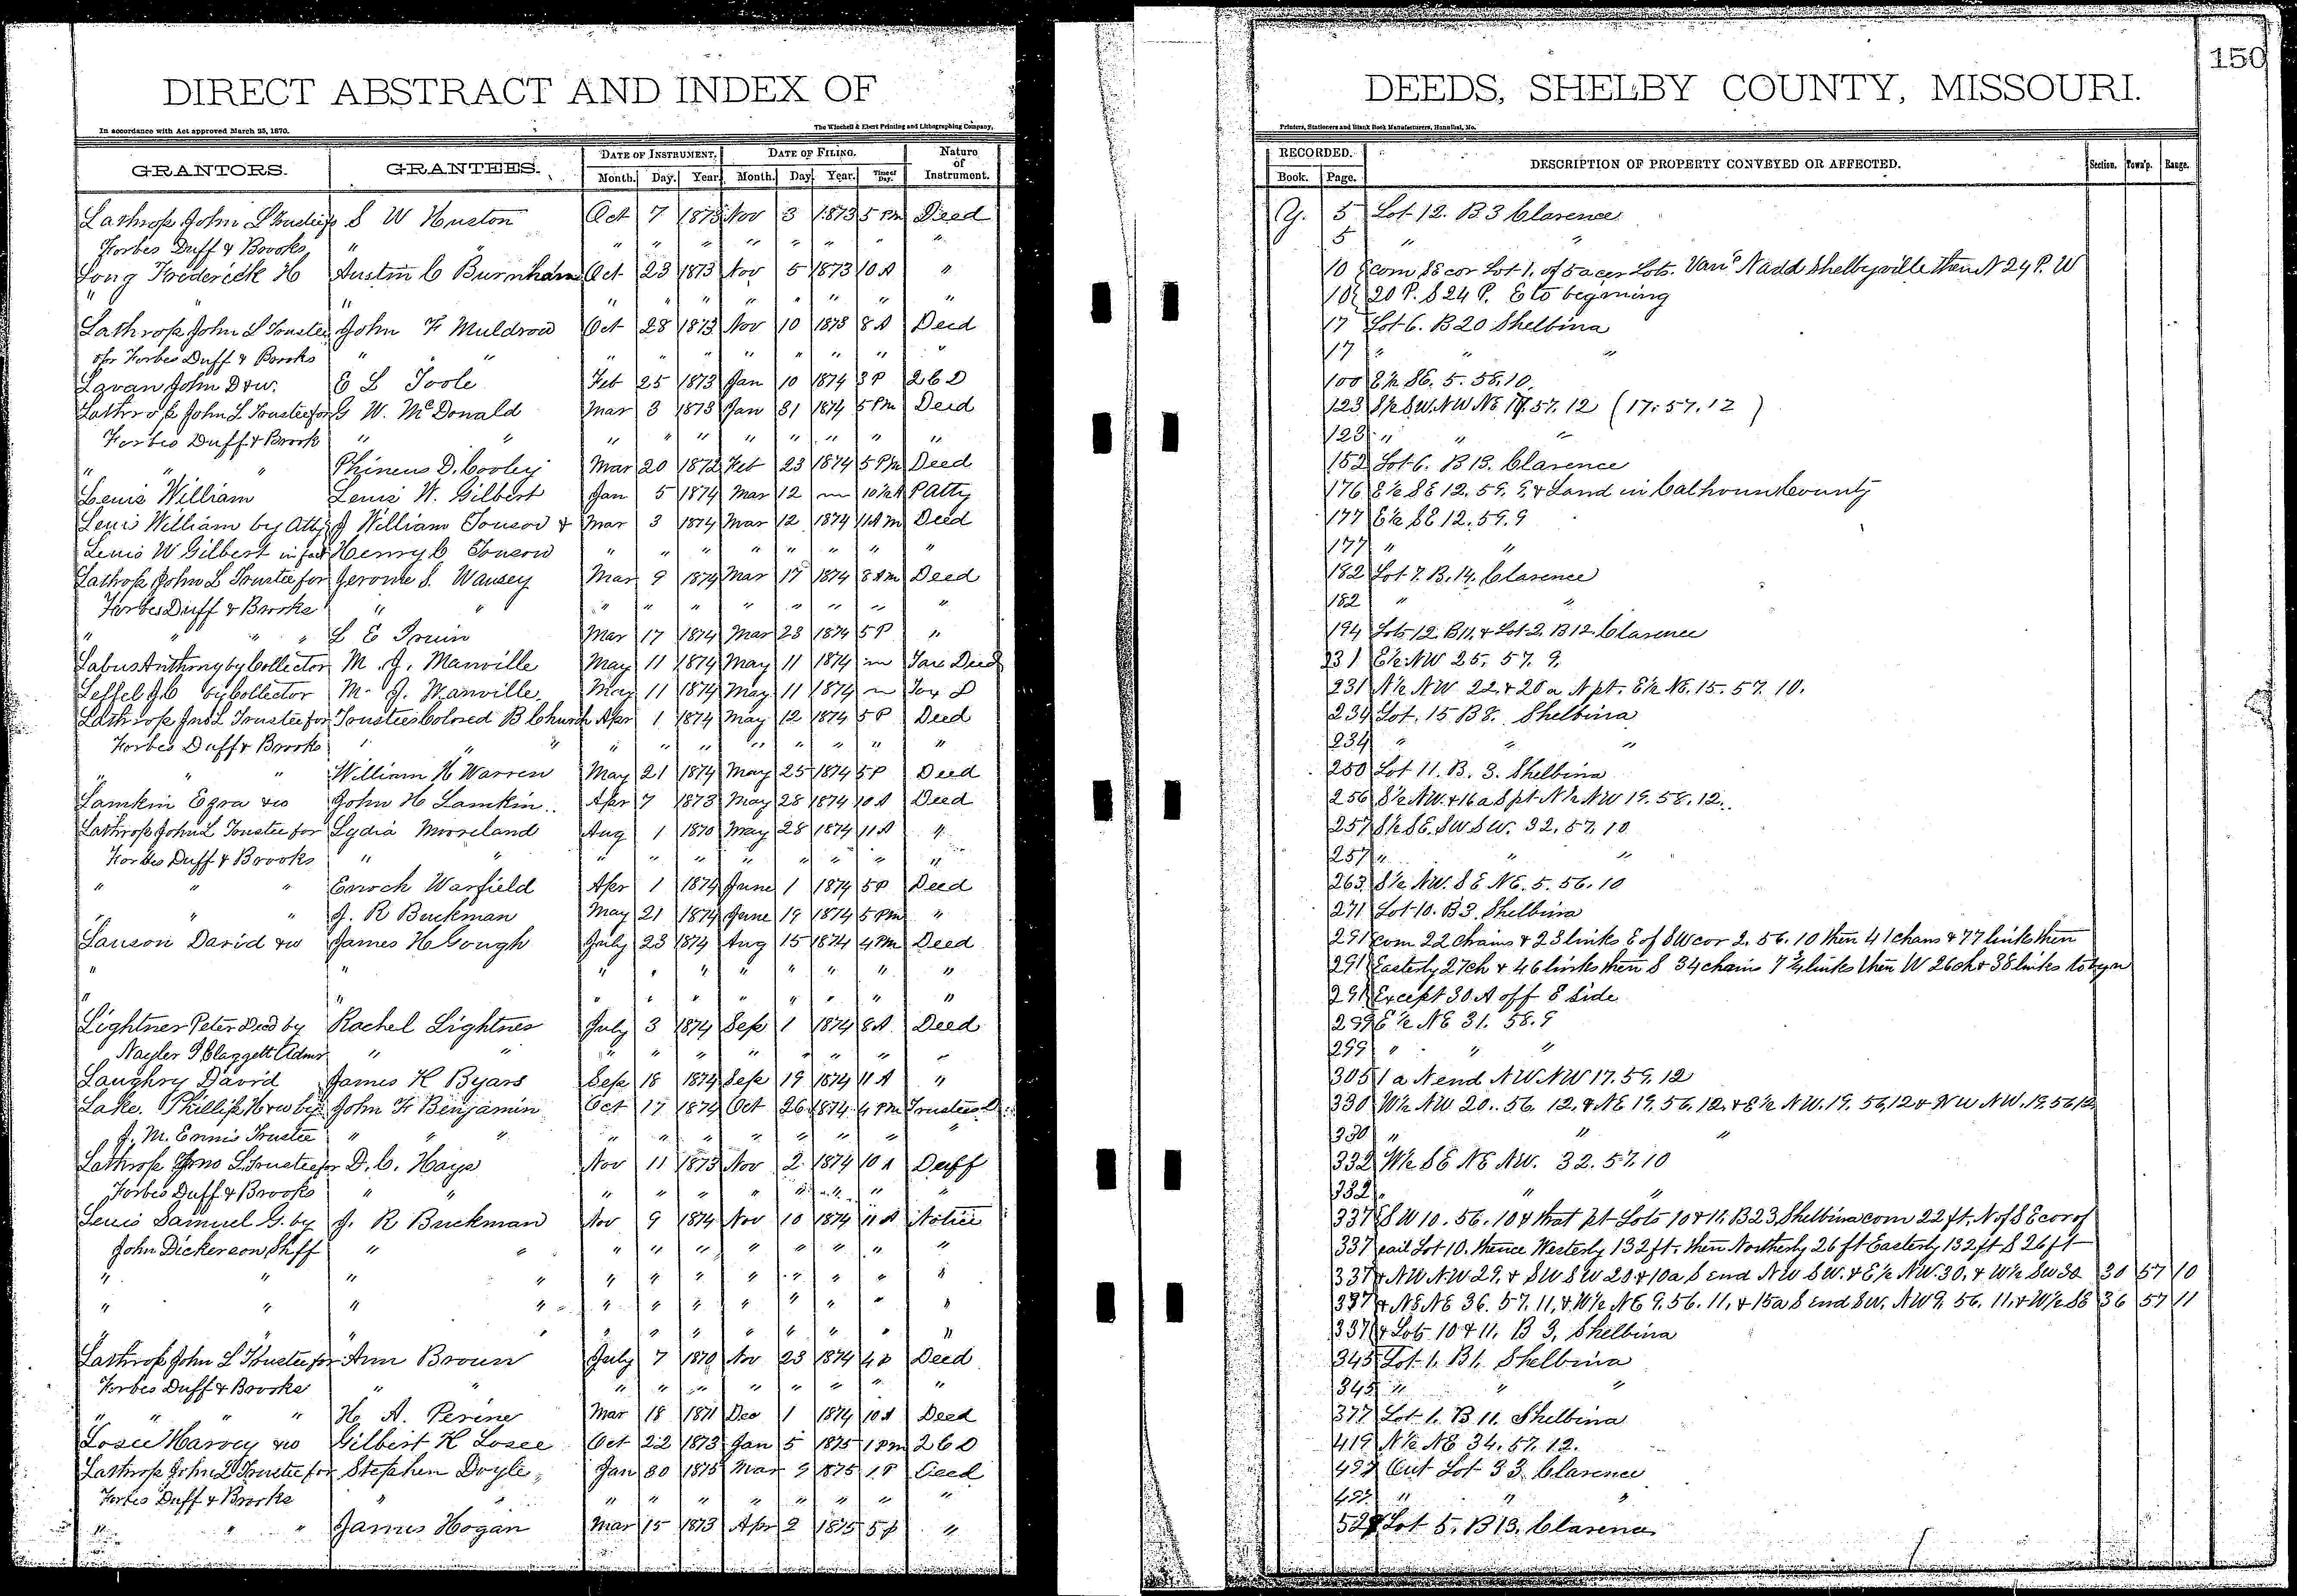 DIRECT ABSTRACT AND INDEX OF
In accordance with Act approved March 25, 1870.
The Winchell & Ebert Printing and Lithographing Company,
GRANTORS. GRANTEES. DATE OF INSTRUMENT. DATE OF FILING. Nature of Instrument.
Month. Day. Year. Month. Day. Year. Time of Day.
Lathrop John L Trustee for S W Huston Oct 7 1873 Nov 3 1873 5 PM Deed
Forbes Duff & Brooks " " " " " " " " " "
Long Frederick H Austin C Burnham Oct 23 1873 Nov 5 1873 10 A "
" " " " " " " " " "
Lathrop John L Trustee John F Muldrow Oct 28 1873 Nov 10 1873 8 A Deed
for Forbes Duff & Brooks " " " " " " " " " " "
Lavan John D & w. E L Toole Feb 25 1873 Jan 10 1874 3 P 2 C D
Lathrop John L Trustee for G W. McDonald Mar 3 1873 Jan 31 1874 5 PM Deed
Forbes Duff & Brook " " " " " " " " " "
" " " Phineus D. Cooley Mar 20 1872 Feb 23 1874 5 PM Deed
Lewis William Lewis W. Gilbert Jan 5 1874 Mar 12 " 10½ A P Atty
Lewis William by Atty J William Towson & Mar 3 1874 Mar 12 1874 11 A M Deed
Lewis W Gilbert in fact Henry C Towson " " " " " " " "
Lathrop John L Trustee for Jerome S. Wausey Mar 9 1874 Mar 17 1874 8 AM Deed
Forbes Duff & Brooks " " " " " " " " " "
" " " " L E Irwin Mar 17 1874 Mar 23 1874 5 P "
Labus Anthony by Collector M. J. Manville May 11 1874 May 11 1874 " Tax Deed
Leffel J C by Collector M. J. Manville May 11 1874 May 11 1874 " Tax D
Lathrop Jno L Trustee for Trustees Colored B Church Apr 1 1874 May 12 1874 5 P Deed
Forbes Duff & Brooks " " " " " " " " " " "
" " " William H Warren May 21 1874 May 25 1874 5 P Deed
Lamkin Ezra & w John H Lamkin Apr 7 1873 May 28 1874 10 A Deed
Lathrop John L Trustee for Lydia Mooreland Aug 1 1870 May 28 1874 11 A "
Forbes Duff & Brooks " " " " " " " " " "
" " " Enoch Warfield Apr 1 1874 June 1 1874 5 P Deed
" " " J. R Buckman May 21 1874 June 19 1874 5 PM "
Lawson David & w James H Gough July 23 1874 Aug 15 1874 4 PM Deed
" " " " " " " " " "
" " " " " " " " " "
Lightner Peter Decd by Rachel Lightner July 3 1874 Sep 1 1874 8 A Deed
Nayler & Claggett Admr " " " " " " " " " "
Laughry David James H Byars Sep 18 1874 Sep 19 1874 11 A "
Lake. Phillip H & w by John F Benjamin Oct 17 1874 Oct 26 1874 4 PM Trustees D
J. M. Ennis Trustee " " " " " " " " " " "
Lathrop Jno L Trustee for D. C. Hays Nov 11 1873 Nov 2 1874 10 A Deed
Forbes Duff & Brooks " " " " " " " " " "
Lewis Samuel G. by J. R Buckman Nov 9 1874 Nov 10 1874 11 A Notice
John Dickerson, Shff " " " " " " " " " "
" " " " " " " " " " "
" " " " " " " " " " "
" " " " " " " " " " "
Lathrop John L Trustee for Ann Brown July 7 1870 Nov 23 1874 4 P Deed
Forbes Duff & Brooks " " " " " " " " " "
" " " " H. A. Perine Mar 18 1871 Dec 1 1874 10 A Deed
Losee Harvey & w Gilbert H Losee Oct 22 1873 Jan 5 1875 1 PM 2 C D
Lathrop John L Trustee for Stephen Doyle Jan 30 1875 Mar 9 1875 1 P Deed
Forbes Duff & Brooks " " " " " " " " " "
" " " James Hogan Mar 15 1873 Apr 2 1875 5 P "
150
DEEDS, SHELBY COUNTY, MISSOURI.
Printers, Stationers and Blank Book Manufacturers, Hannibal, Mo.
RECORDED. DESCRIPTION OF PROPERTY CONVEYED OR AFFECTED. Section. Town'p. Range.
Book. Page.
Y. 5 Lot 12. B 3 Clarence
5 " "
10 Com SE cor Lot 1. of 5 acer Lots. Vans N add Shelbyville then N 24 P. W
10 20 P. S 24 P. E to begining
17 Lot 6. B 20 Shelbina
17 " " "
100 E½ SE. 5. 58. 10.
123 S½ SW. NW NE 17. 57. 12 (17. 57. 12)
123 " " "
152 Lot 6. B 13. Clarence
176 E½ SE 12. 59. 9. & Land in Calhoun County
177 E½ SE 12. 59. 9
177 " "
182 Lot 7. B. 14. Clarence
182 " "
194 Lots 12. B 11. & Lot 2. B 12. Clarence
231 E½ NW 25. 57. 9.
231 N½ NW 22. & 20 a N pt. E½ NE. 15. 57. 10.
234 Lot. 15 B 8. Shelbina
234 " " "
250 Lot 11. B. 3. Shelbina
256 S½ NW. & 16 a S pt N½ NW 19. 58. 12.
257 S½ SE. SW SW. 32. 57. 10
257 " " "
263 S½ NW. SE NE. 5. 56. 10
271 Lot 10. B 3. Shelbina
291 Com 22 chains & 23 links E of SW cor 2. 56. 10 then 41 chans & 77 links then
291 Easterly 27 ch & 46 links then S 34 chains 7¾ links then W 26 ch & 38 links to begn
291 Except 30 A off E side
299 E½ NE 31. 58. 9
299 " " "
305 1 a N end NW NW 17. 59. 12
330 W½ NW 20. 56. 12. & NE 19. 56. 12. & E½ NW. 19. 56. 12 & NW NW. 19. 56. 12
330 " " "
332 W½ SE NE NW. 32. 57. 10
332 " " "
337 SW 10. 56. 10 & that pt Lots 10 & 11. B 23 Shelbina com 22 ft. N of SE cor of
337 said Lot 10. thence Westerly 132 ft. then Northerly 26 ft Easterly 132 ft S 26 ft
337 & NW NW 29. & SW SW 20 & 10 a S end NW SW. & E½ NW. 30. & W½ SW 30 30 57 10
337 & NE NE 36. 57. 11. & W½ NE 9. 56. 11. & 15 a S end SW. NW 9. 56. 11. & W½ SE 36 57 11
337 & Lots 10 & 11. B 3, Shelbina
345 Lot 1. B 1. Shelbina
345 " " "
377 Lot 1. B 11. Shelbina
419 N½ NE 34. 57. 12.
497 Out Lot 33 Clarence
497 " " "
527 Lot 5. B 13. Clarence